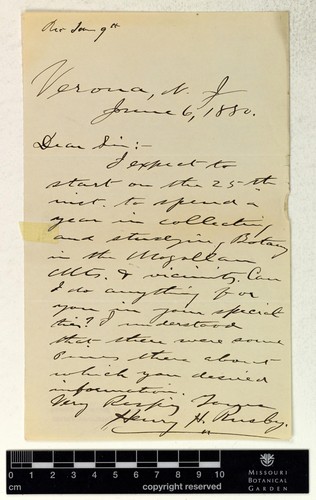 Rec June 9th
Verona, N. J
June 6, 1880.
Dear Sir:-
I expect to
start on the 25th
inst. to spend a
year in collecting
and studying Botany
in the Mogollon
Mts. & vicinity. Can
I do anything for
you in your special
ties? I understood
that there were some
there about
which you desired
information.
Very Respy. Yours
Henry H. Rusby.
0 1 2 3 4 5 6 7 8 9 10
cm
MISSOURI
BOTANICAL
GARDEN
copyright reserved